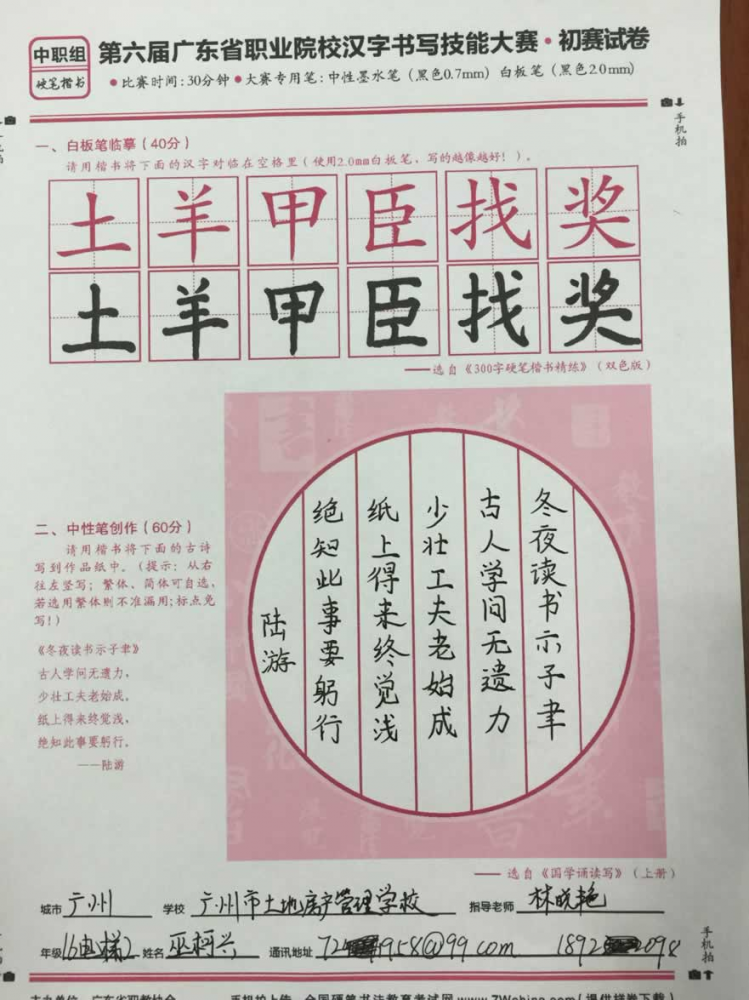 中职组
硬笔楷书
第六届广东省职业院校汉字书写技能大赛·初赛试卷
●比赛时间:30分钟●大赛专用笔:中性墨水笔（黑色0.7mm）白板笔（黑色2.0mm)
手机拍
一、白板笔临摹（40分）
请用楷书将下面的汉字对临在空格里（使用2.0mm白板笔，写的越像越好！）。
土羊甲臣找奖
土羊甲臣找奖
——选自《300字硬笔楷书精练》（双色版）
二、中性笔创作（60分）
请用楷书将下面的古诗
写到作品纸中。（提示：从右
往左竖写；繁体、简体可自选，
若选用繁体则不准漏用;标点免
写!）
《冬夜读书示子聿》
古人学问无遗力，
少壮工夫老始成。
纸上得来终觉浅，
绝知此事要躬行。
——陆游
冬夜读书示子聿
古人学问无遗力
少壮工夫老始成
纸上得来终觉浅
绝知此事要躬行
陆游
——选自《国学诵读写》（上册）
城市 广州 学校 广州市土地房产管理学校 指导老师 林晓艳
年级 16电梯2 姓名 巫柯兴 通讯地址 958@99.com 2098
手机拍